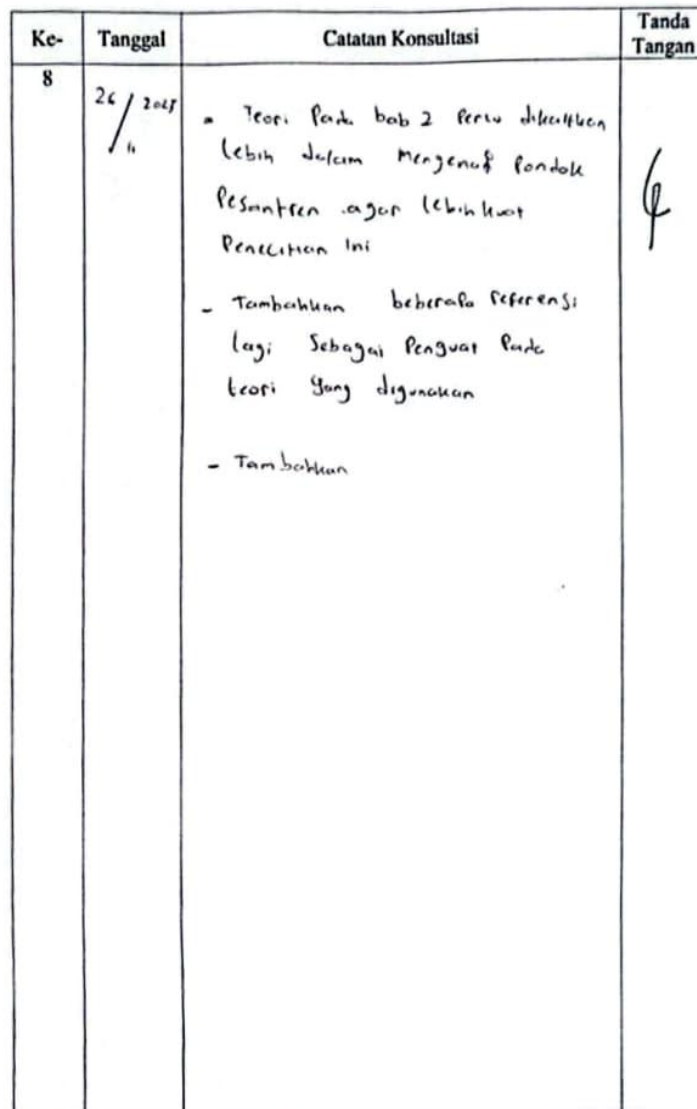 Ke-
Tanggal
Catatan Konsultasi
Tanda
Tangan
8
26/11
- Teori Pada bab 2 Perlu dikaitkan
lebih dalam mengenai Pondok
Pesantren agar lebih kuat
Penelitian Ini
- Tambahkan beberapa referensi
lagi Sebagai Penguat Pada
teori yang digunakan
- Tambahkan